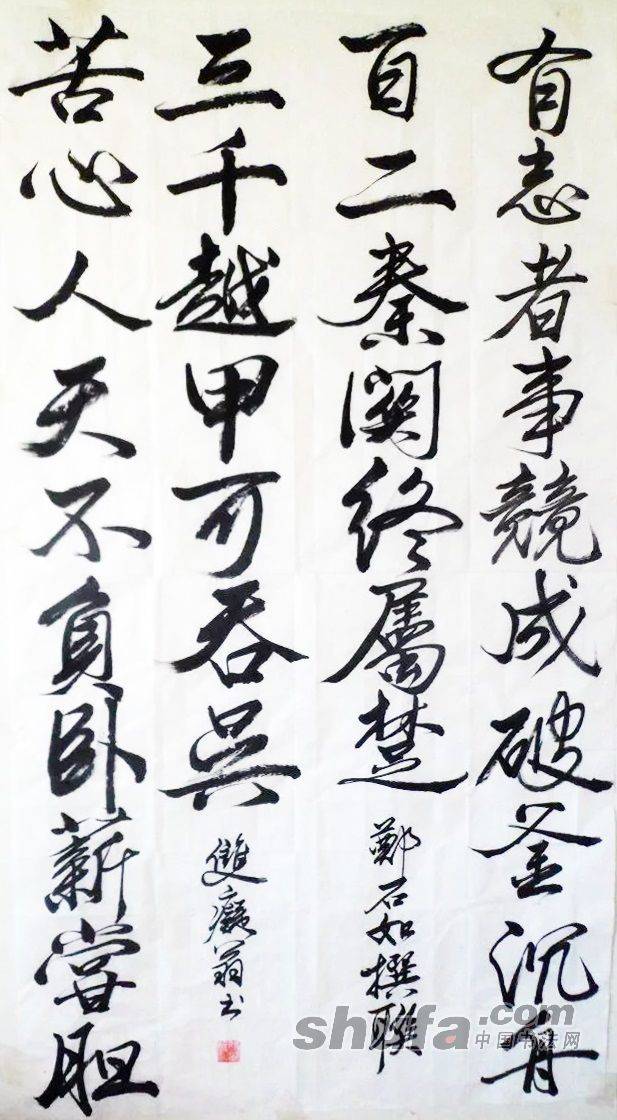 有志者事競成破釜沉舟
百二秦関終屬楚
鄭石如撰聯
苦心人天不負卧薪嘗胆
三千越甲可吞吳
雙癡翁书
shufa.com
中国书法网